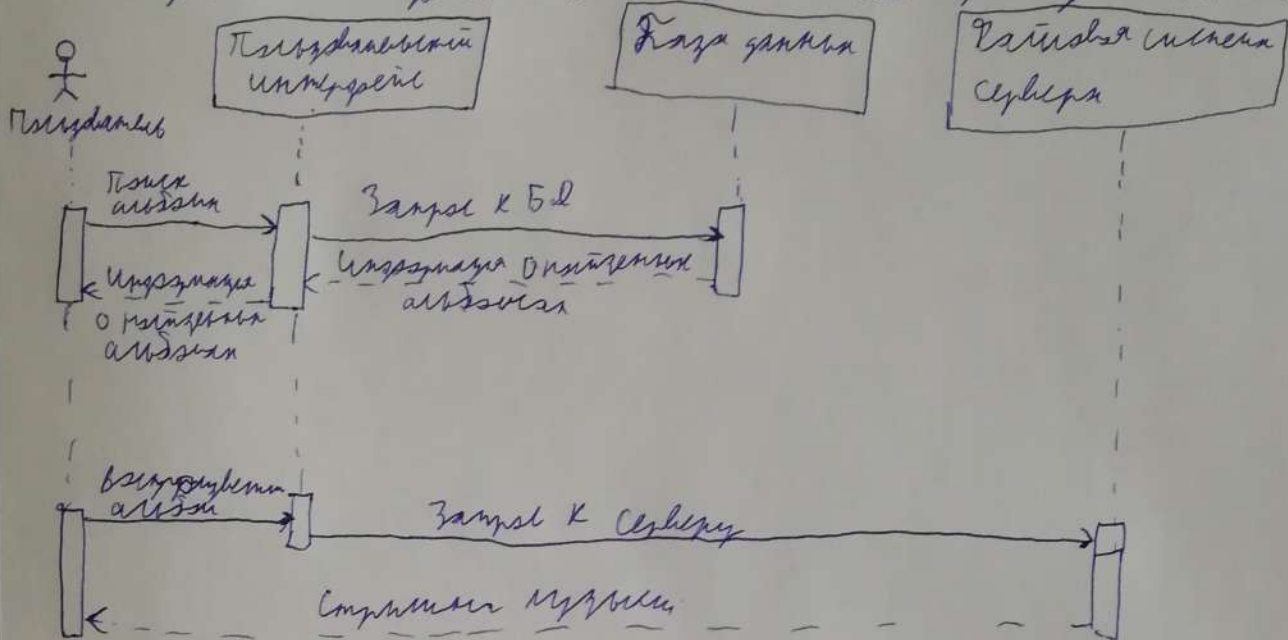 Пользовательский
интерфейс
База данных
Файловая система
сервера
Пользователь
Поиск
альбома
Запрос к БД
Информация о найденных
альбомах
Информация
о найденных
альбомах
Воспроизвести
альбом
Запрос к серверу
Стриминг музыки